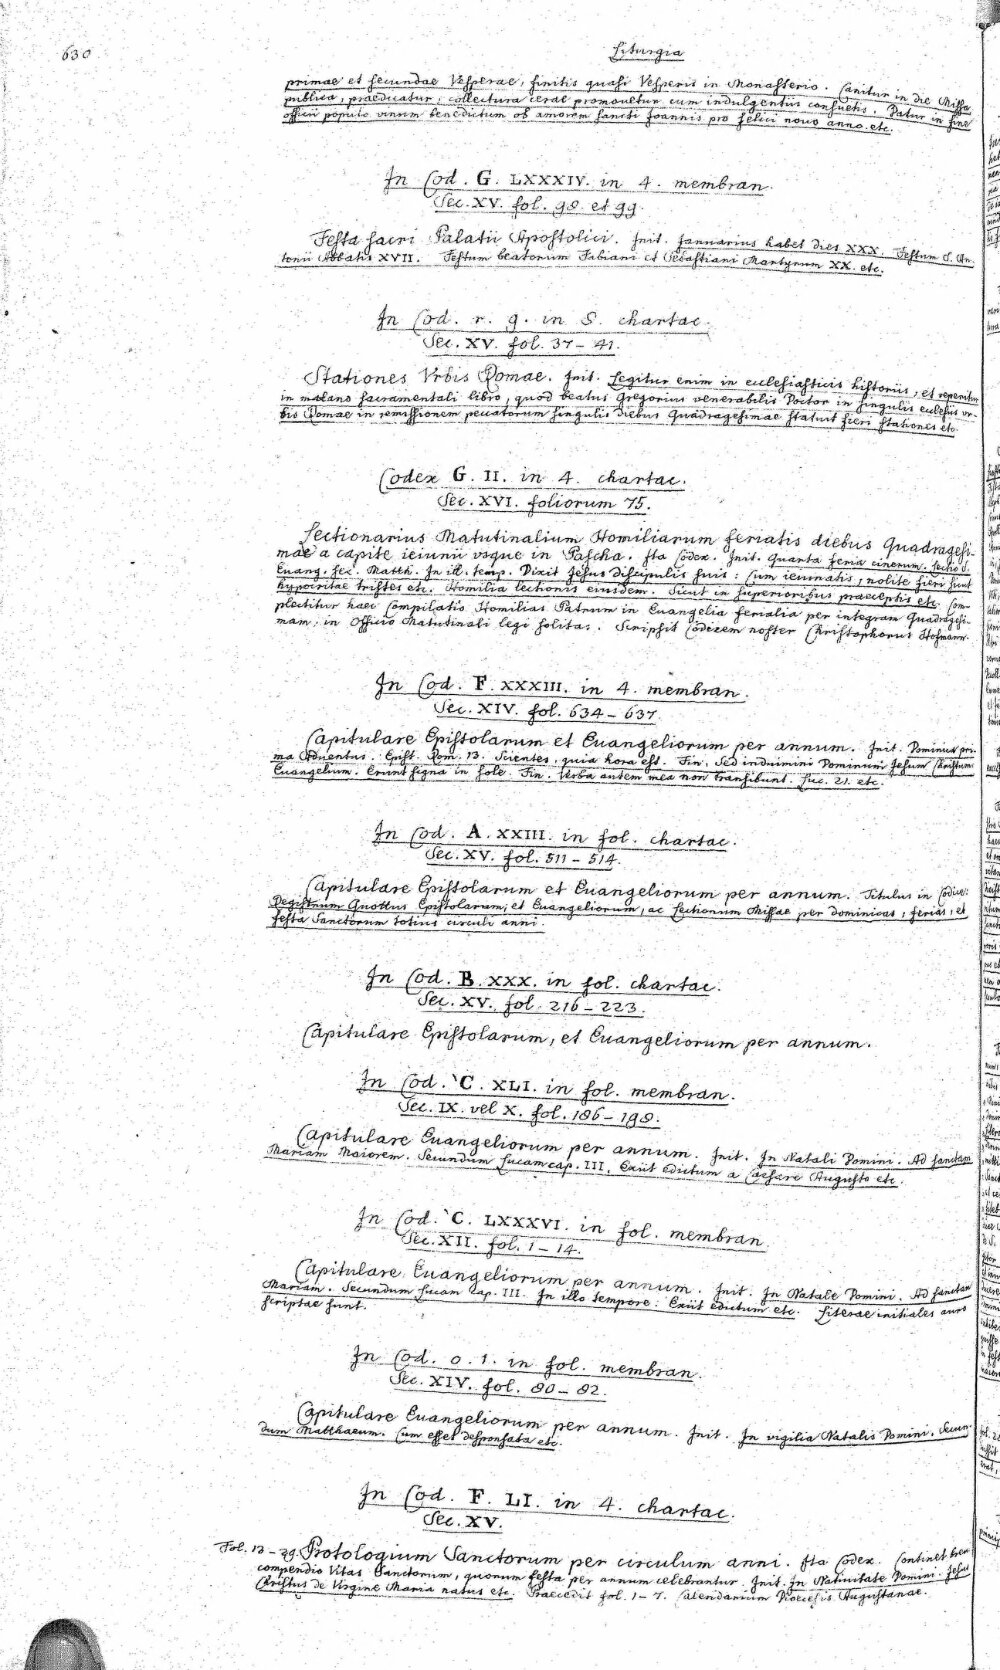 630
Liturgia
primae et secundae Vesperae, finitis quasi Vesperis in Monasterio. Canitur in die Missa
publica, praedicatur, collectura cerae promouetur cum indulgentiis consuetis. Datur in fine
officii populo vinum benedictum ob amorem sancti Joannis pro felici nouo anno. etc.
In Cod. G. LXXXIV. in 4. membran.
Sec. XV. fol. 98 et 99.
Festa sacri Palatii Apostolici. Init. Januarius habet dies XXX. Festum S. An-
tonii Abbatis XVII. Festum beatorum Fabiani et Sebastiani Martyrum XX. etc.
In Cod. r. 9. in 8. chartac.
Sec. XV. fol. 37-41.
Stationes Vrbis Romae. Init. Legitur enim in ecclesiasticis historiis, et reperitur
in sacramentali libro, quod beatus Gregorius venerabilis Doctor in singulis eclesiis vr-
bis Romae in remissionem peccatorum singulis diebus Quadragesimae statuit fieri stationes etc.
Codex G. II. in 4. chartac.
Sec. XVI. foliorum 75.
Lectionarius Matutinalium Homiliarum feriatis diebus Quadragesi-
mae a capite ieiunii vsque in Pascha. Ita Codex. Init. Quarta feria cinerum. Lectio S.
Euang. sec. Matth. In ill. temp. Dixit Jesus discipulis suis: Cum ieiunatis, nolite fieri sicut
hypocritae tristes etc. Homilia lectionis eiusdem. Sicut in superioribus praeceptis etc. Com-
plectitur haec Compilatio Homilias Patrum in Euangelia ferialia per integram Quadragesi-
mam, in Officio Matutinali legi solitas. Scripsit Codicem noster Christophorus Hofmann.
In Cod. F. XXXIII. in 4. membran.
Sec. XIV. fol. 634-637.
Capitulare Epistolarum et Euangeliorum per annum. Init. Dominica pri-
ma Aduentus. Epist. Rom. 13. Scientes, quia hora est. Fin. Sed induimini Dominum Jesum Christum.
Euangelium. Erunt signa in sole. Fin. Verba autem mea non transibunt. Luc. 21. etc.
In Cod. A. XXIII. in fol. chartac.
Sec. XV. fol. 511-514.
Capitulare Epistolarum et Euangeliorum per annum. Titulus in Codice:
Registrum Quottus Epistolarum, et Euangeliorum, ac Lectionum Missae per dominicas, ferias, et
festa Sanctorum totius circuli anni.
In Cod. B. XXX. in fol. chartac.
Sec. XV. fol. 216-223.
Capitulare Epistolarum, et Euangeliorum per annum.
In Cod. C. XLI. in fol. membran.
Sec. IX. vel X. fol. 186-198.
Capitulare Euangeliorum per annum. Init. In Natali Domini. Ad sanctam
Mariam Maiorem. Secundum Lucam cap. III. Exiit edictum a Caesare Augusto etc.
In Cod. C. LXXXVI. in fol. membran.
Sec. XII. fol. 1-14.
Capitulare Euangeliorum per annum. Init. In Natale Domini. Ad sanctam
Mariam. Secundum Lucam Cap. III. In illo tempore: Exiit edictum etc. Literae initiales auro
scriptae sunt.
In Cod. o. 1. in fol. membran.
Sec. XIV. fol. 80-82.
Capitulare Euangeliorum per annum. Init. In vigilia Natalis Domini. Secun-
dum Matthaeum. Cum esset desponsata etc.
In Cod. F. LI. in 4. chartac.
Sec. XV.
Fol. 13-39. Protologium Sanctorum per circulum anni. Ita Codex. Continet breui
compendio Vitas Sanctorum, quorum festa per annum celebrantur. Init. In Natiuitate Domini. Jesus
Christus de Virgine Maria natus etc. Praecedit fol. 1-7. Calendarium Dioecesis Augustanae.